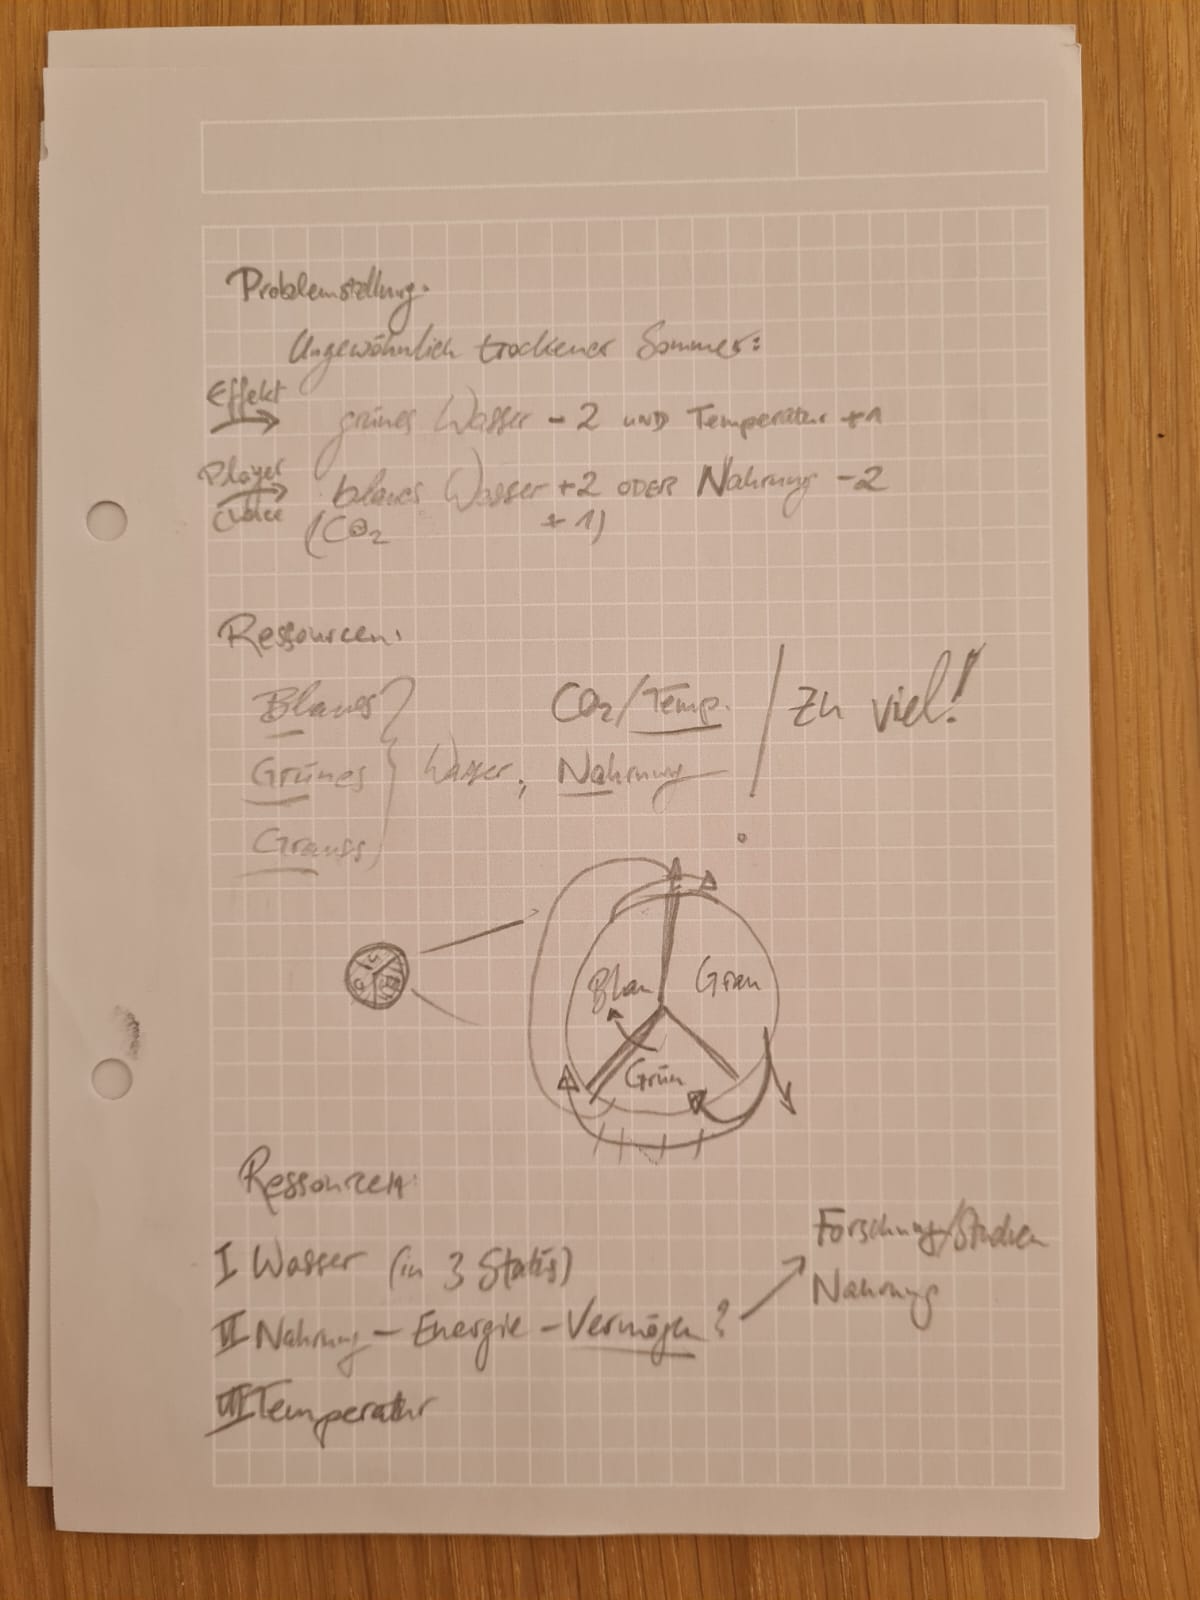 Problemstellung:
Ungewöhnlich trockener Sommer:
Effekt
grünes Wasser - 2 UND Temperatur +1
Player
Choice
blaues Wasser +2 ODER Nahrung -2
(CO₂ +1)
Ressourcen:
Blaues
Grünes
Graues
Wasser, CO₂/Temp.
Nahrung
Zu viel!
Blau
Grau
Grün
Ressourcen:
I Wasser (in 3 Status)
II Nahrung - Energie - Vermögen?
Forschung/Studien
Nahrung
III Temperatur